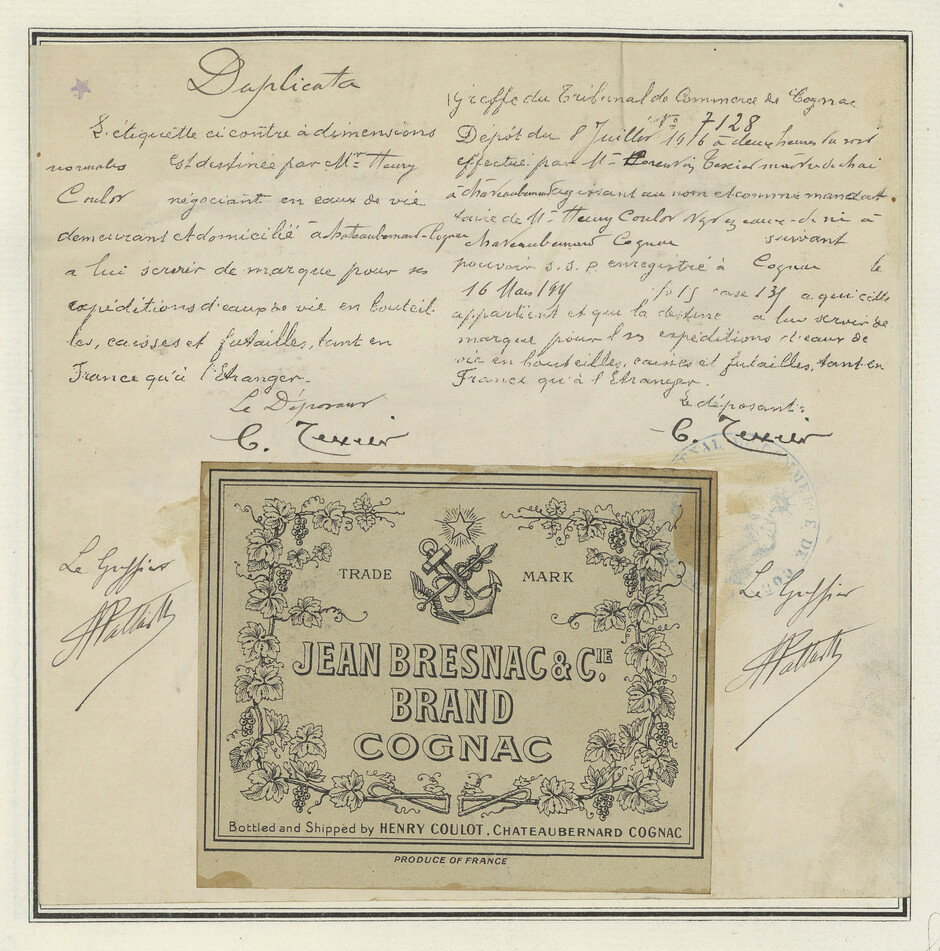 Duplicata
L'étiquette ci contre à dimensions
normales est destinée par Mr Henry
Coulot négociant en eaux de vie
demeurant et domicilié à Chateaubernard-Cognac
a lui servir de marque pour ses
expéditions d'eaux de vie en bouteil-
les, caisses et futailles, tant en
France qu'à l'Etranger.
Le Déposant
C. Texier
Le Greffier
Greffe du Tribunal de Commerce de Cognac
No 7128
Dépôt du 8 Juillet 1916 à deux heures du soir
effectué par Mr Texier maitre de chai
à Chateaubernard agissant au nom et comme mandat-
taire de Mr Henry Coulot Ngt eaux-de-vie à
Chateaubernard Cognac suivant
pouvoir s.s.p. enregistré à Cognac le
16 Mars fo 15 case 135 a qui cette
appartient et que la destine a lui servir de
marque pour les expéditions d'eaux de
vie en bouteilles, caisses et futailles, tant en
France qu'à l'Etranger.
Le déposant:
C. Texier
Le Greffier
TRIBUNAL DE COMMERCE DE COGNAC
TRADE MARK
JEAN BRESNAC & CIE.
BRAND
COGNAC
Bottled and Shipped by HENRY COULOT, CHATEAUBERNARD COGNAC
PRODUCE OF FRANCE